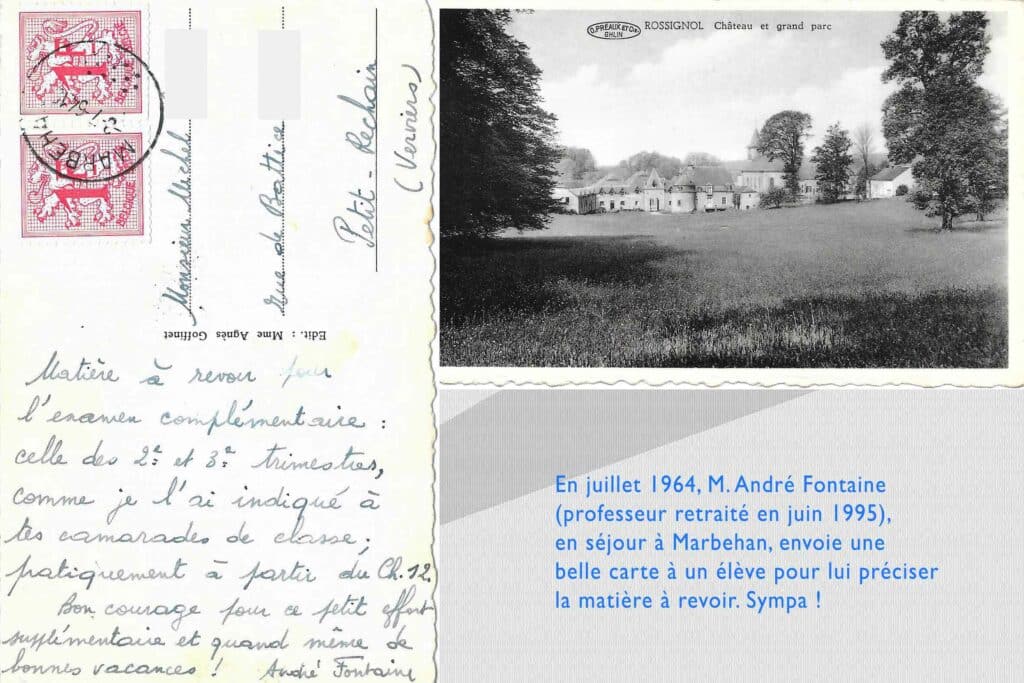 1F
BELGIQUE
BELGIE
1F
BELGIQUE
MARBEH
Monsieur Michel
rue de Battice
Petit-Rechain
(Verviers)
Edit. : Mme Agnès Goffinet
Matière à revoir pour
l'examen complémentaire :
celle des 2e et 3e trimestres,
comme je l'ai indiqué à
tes camarades de classe ;
pratiquement à partir du Ch. 12.
Bon courage pour ce petit effort
supplémentaire et quand même de
bonnes vacances ! André Fontaine
D. PREAUX ET Cie
GHLIN
ROSSIGNOL Château et grand parc
En juillet 1964, M. André Fontaine
(professeur retraité en juin 1995),
en séjour à Marbehan, envoie une
belle carte à un élève pour lui préciser
la matière à revoir. Sympa !